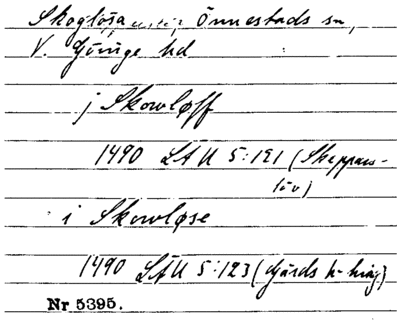 Skoglösa Önnestads sn,
V. Göinge hd
j Skowløff
1490 LÄU 5:121 (Skeppars-
löv)
i Skowløse
1490 LÄU 5:123 (Gärds h-hing)
Nr 5395.